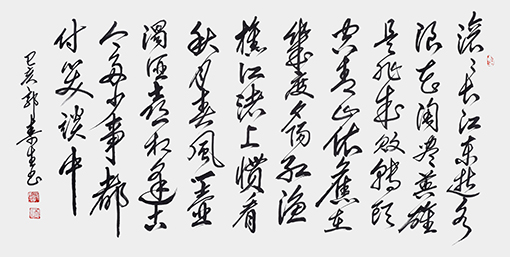 滚々长江东逝水
浪花淘尽英雄
是非成败转头
空青山依旧在
幾度夕阳红渔
樵江渚上惯看
秋月春风一壶
浊酒喜相逢古
今多少事都
付笑谈中
己亥郭